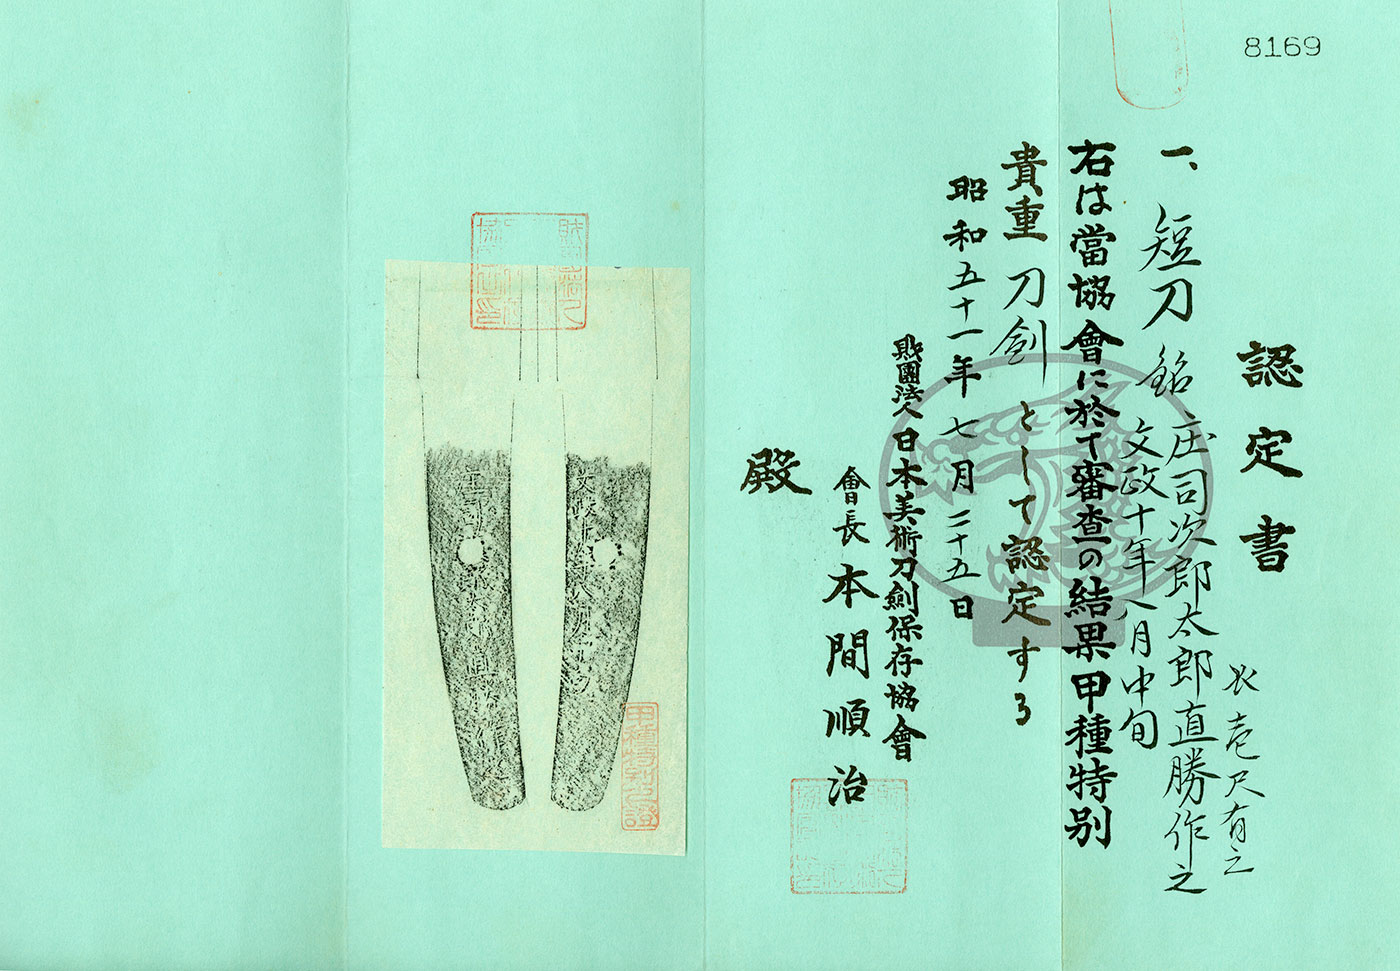 8169
認定書
一、短刀 銘 庄司次郎太郎直勝作之
文政十年八月中旬
长壱尺有之
右は當協會に於て審査の結果甲種特別
貴重刀剣として認定する
昭和五十一年七月二十五日
財團法人日本美術刀劍保存協會
會長 本間順治
殿
甲種特別之證